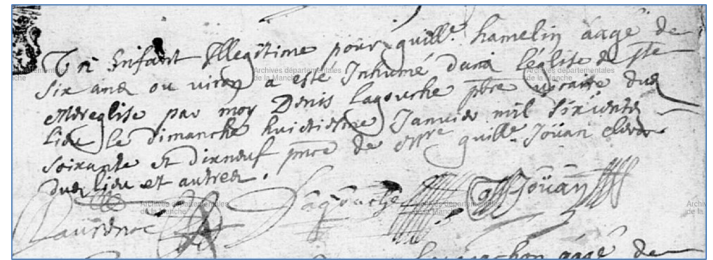 Un Enfant Illegitime pour guille. hamelin aagé de
six ans ou viron a esté Inhumé dans l'église de ste
mereglise par moy Denis Lagouche pbre vicaire dud
lieu le dimanche huictiesme Janvier mil six cents
soixante et dixneuf pnce de guille. Jouan clerc
dud lieu et autres.
Lagouche Jouan
aagé de
Archives départementales
de la Manche